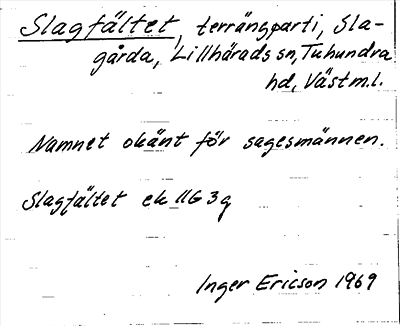 Slagfältet, terrängparti, Sla-
gårda, Lillhärads sn, Tuhundra
hd, Västm.l.
Namnet okänt för sagesmännen.
Slagfältet ek 11G 3g
Inger Ericson 1969